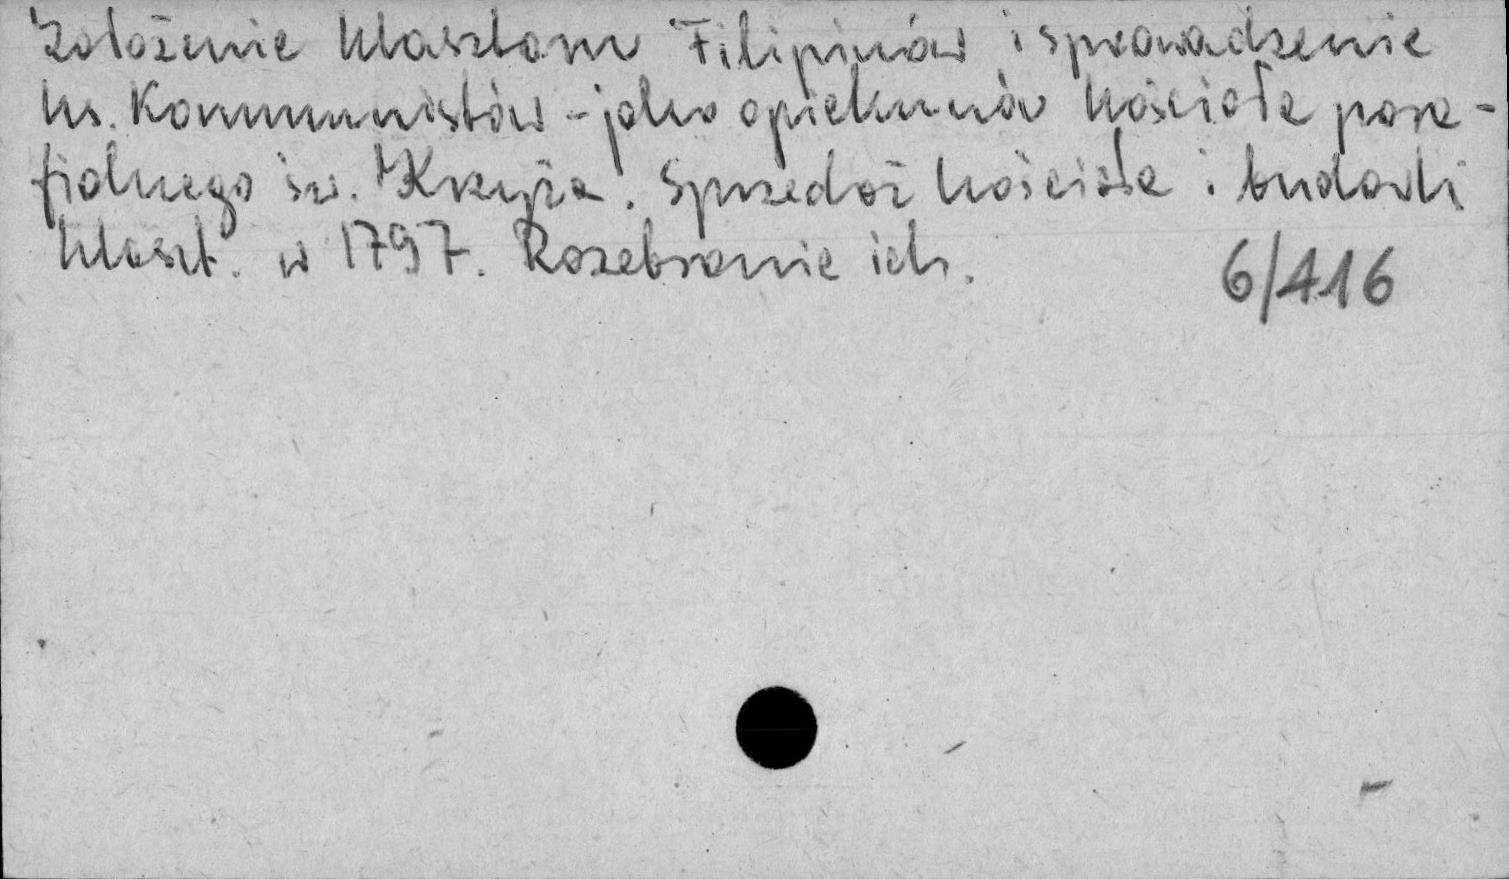 Założenie klasztoru Filipinów i sprowadzenie
ks. Kommunistów - jako opiekunów kościoła para-
fialnego św. Krzyża. Sprzedaż kościoła i budowli
klaszt. w 1797. Rozebranie ich.
6/416